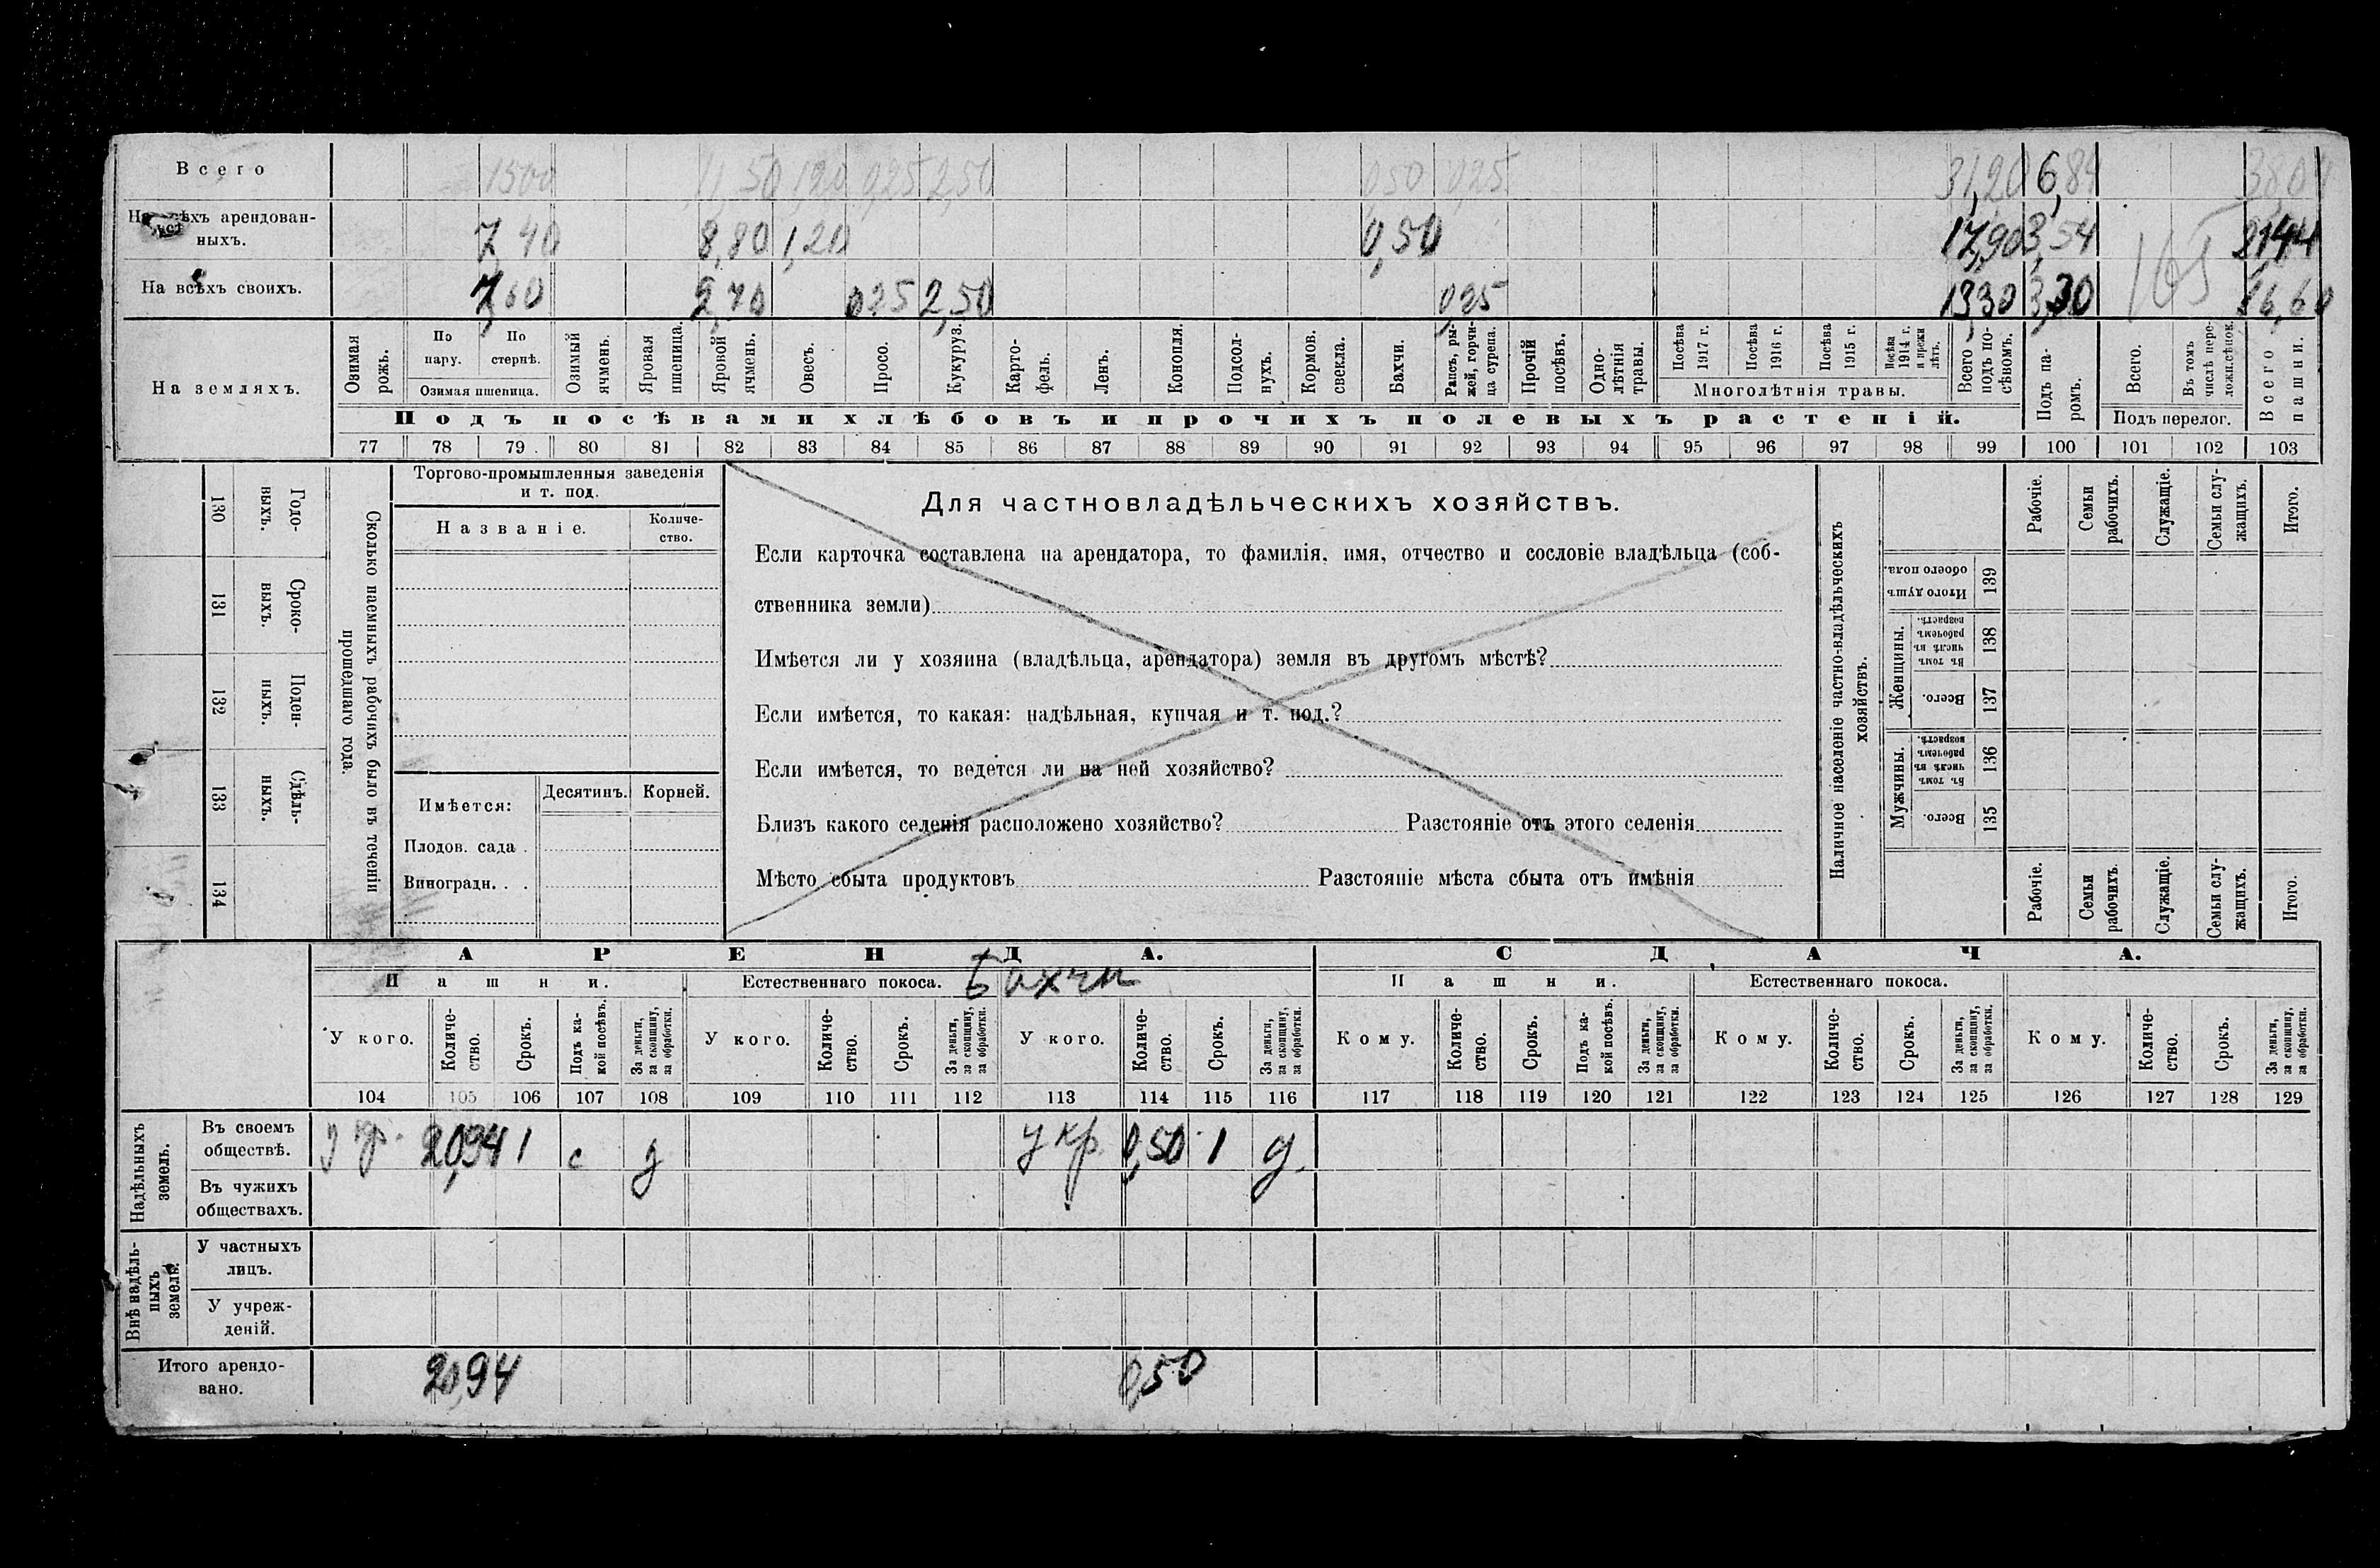 Всего 1500 11,50 1,20 0,25 2,50 0,50 0,25 31,20 6,84 38,04
На всѣхъ арендован-
ныхъ. 7,40 8,80 1,20 0,50 17,90 3,54 21,44
На всѣхъ своихъ. 7,60 2,70 0,25 2,50 0,25 13,30 3,30 16,60
165
На земляхъ.
Озимая рожь.
По пару.
По стернѣ.
Озимая пшеница.
Озимый ячмень.
Яровая пшеница.
Яровой ячмень.
Овесъ.
Просо.
Кукуруз.
Карто-
фель.
Ленъ.
Конопля.
Подсол-
нухъ.
Кормов.
свекла.
Бахчи.
Рапсъ, ры-
жей, горчи-
ца сурепа.
Прочій посѣвъ.
Одно-
лѣтнія
травы.
Посѣва 1917 г.
Посѣва 1916 г.
Посѣва 1915 г.
Посѣва 1914 г. и прежн лѣтъ.
Многолѣтнія травы.
Всего подъ по-
сѣвомъ.
Подъ па-
ромъ.
Всего.
Въ томъ числѣ пере-
ложн.сѣнок.
Подъ перелог.
Всего пашни.
Подъ посѣвами хлѣбовъ и прочихъ полевыхъ растеній.
77 78 79 80 81 82 83 84 85 86 87 88 89 90 91 92 93 94 95 96 97 98 99 100 101 102 103
130 Годо-
выхъ.
131 Сроко-
выхъ.
132 Поден-
ныхъ.
133 Сдѣль-
ныхъ.
134
Сколько наемныхъ рабочихъ было въ теченіи
прошедшаго года.
Торгово-промышленныя заведенія
и т. под.
Названіе.
Количе-
ство.
Имѣется:
Десятинъ.
Корней.
Плодов. сада .
Виноградн. . .
Для частновладѣльческихъ хозяйствъ.
Если карточка составлена на арендатора, то фамилія, имя, отчество и сословіе владѣльца (соб-
ственника земли)
Имѣется ли у хозяина (владѣльца, арендатора) земля въ другомъ мѣстѣ?
Если имѣется, то какая: надѣльная, купчая и т. под.?
Если имѣется, то ведется ли на ней хозяйство?
Близъ какого селенія расположено хозяйство? Разстояніе отъ этого селенія
Мѣсто сбыта продуктовъ Разстояніе мѣста сбыта отъ имѣнія
Наличное населеніе частно-владѣльческихъ
хозяйствъ.
Рабочіе.
Семьи рабочихъ.
Служащіе.
Семьи слу-
жащихъ.
Итого.
Итого душъ обоего пола. 139
Женщины.
Въ томъ числѣ въ рабочемъ возрастѣ. 138
Всего. 137
Мужчины.
Въ томъ числѣ въ рабочемъ возрастѣ. 136
Всего. 135
Рабочіе.
Семьи рабочихъ.
Служащіе.
Семьи слу-
жащихъ.
Итого.
АРЕНДА. СДАЧА.
Пашни. Естественнаго покоса. Бахчи Пашни. Естественнаго покоса.
У кого. Количе-
ство. Срокъ. Подъ ка-
кой посѣвъ. За деньги, за скопщину, за обработки.
У кого. Количе-
ство. Срокъ. За деньги, за скопщину, за обработки.
У кого. Количе-
ство. Срокъ. За деньги, за скопщину, за обработки.
Кому. Количе-
ство. Срокъ. Подъ ка-
кой посѣвъ. За деньги, за скопщину, за обработки.
Кому. Количе-
ство. Срокъ. За деньги, за скопщину, за обработки.
Кому. Количе-
ство. Срокъ. За деньги, за скопщину, за обработки.
104 105 106 107 108 109 110 111 112 113 114 115 116 117 118 119 120 121 122 123 124 125 126 127 128 129
Надѣльныхъ земель.
Въ своемъ
обществѣ. у кр. 20,94 1 с д у кр. 0,50 1 д.
Въ чужихъ
обществахъ.
Внѣ надѣль-
ныхъ земель.
У частныхъ
лицъ.
У учреж-
деній.
Итого арендо-
вано. 20,94 0,50